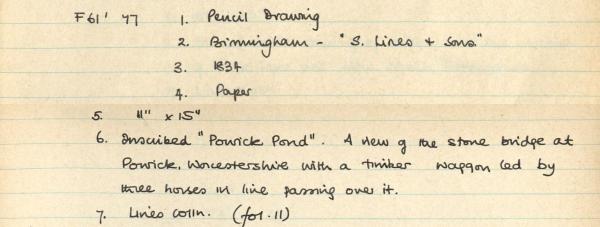 F61' 77 1. Pencil Drawing
2. Birmingham - "S. Lines + Sons"
3. 1834
4. Paper
5. 11" x 15"
6. Inscribed "Powick Pond". A view of the stone bridge at
Powick, Worcestershire with a timber waggon led by
three horses in line passing over it.
7. Lines colln. (fol. 11)